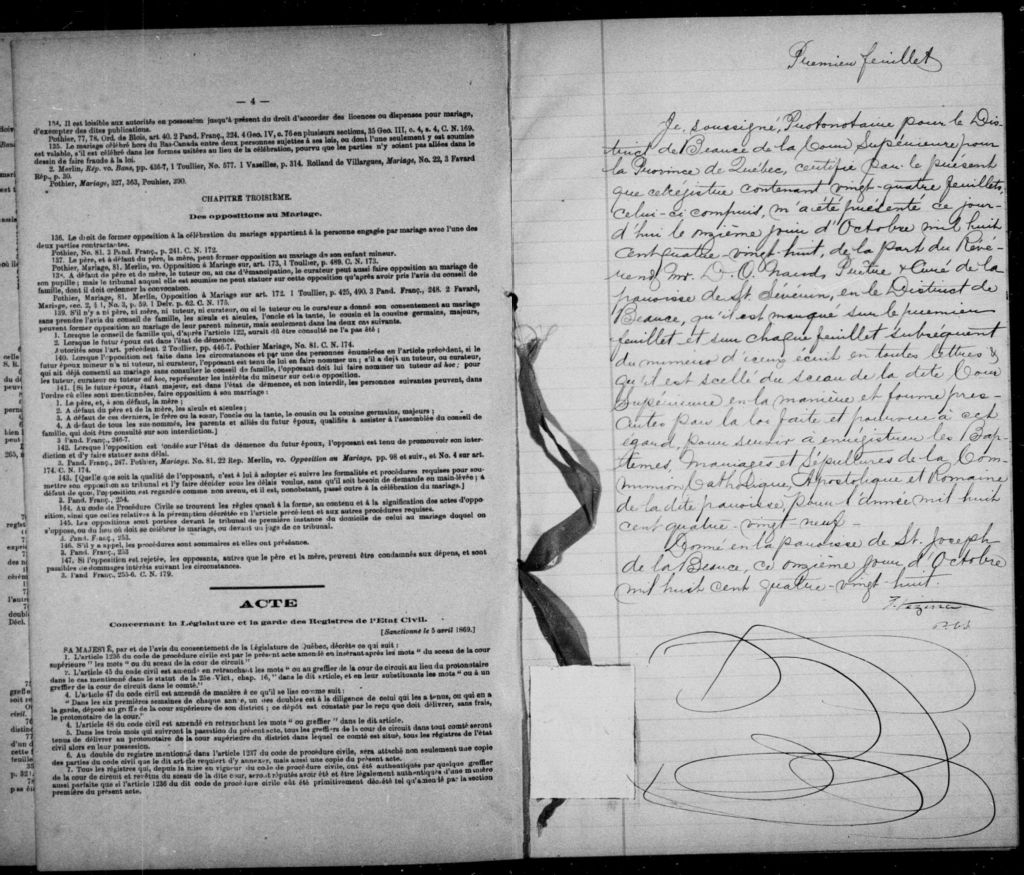 — 4 —
134. Il est loisible aux autorités en possession jusqu'à présent du droit d'accorder des licences ou dispenses pour mariage,
d'exempter des dites publications.
Pothier, 77, 78. Ord. de Blois, art. 40. 2 Pand. Franç., 224. 4 Geo. IV, c. 76 en plusieurs sections, 35 Geo. III, c. 4, s. 4, C. N. 169.
135. Le mariage célébré hors du Bas-Canada entre deux personnes sujettes à ses lois, ou dont l'une seulement y est soumise
est valable, s'il est célébré dans les formes usitées au lieu de la célébration, pourvu que les parties n'y soient pas allées dans le
dessin de faire fraude à la loi.
2. Merlin, Rép. vo. Bans, pp. 436-7, 1 Toulier, No. 577. 1 Vaseilles, p. 314. Rolland de Villargues, Mariage, No. 22, 3 Favard
Rép., p. 30.
Pothier, Mariage, 327, 363, Pouhier, 390.
CHAPITRE TROISIÈME.
Des oppositions au Mariage.
136. Le droit de former opposition à la célébration du mariage appartient à la personne engagée par mariage avec l'une des
deux parties contractantes.
Pothier, No. 81. 3 Pand. Franç., p. 241. C. N. 172.
137. Le père, et à défaut du père, la mère, peut former opposition au mariage de son enfant mineur.
Pothier, Mariage, 81. Merlin, vo. Opposition à Mariage sur art. 173, 1 Toullier, p. 489, C. N. 173.
138. A défaut de père et de mère, le tuteur ou, au cas d'émancipation, le curateur peut aussi faire opposition au mariage de
son pupille; mais le tribunal auquel elle est soumise ne peut statuer sur cette opposition qu'après avoir pris l'avis du conseil de
famille, dont il doit ordonner la convocation.
Pothier, Mariage, 81. Merlin, Opposition à Mariage sur art. 172. 1 Toullier, p. 425, 490. 3 Pand. Franç., 248. 2 Favard,
Mariage, sec. 2, § 1, No. 3, p. 59. 1 Delv. p. 62. C. N. 175.
139. S'il n'y a ni père, ni mère, ni tuteur, ni curateur, ou si le tuteur ou le curateur a donné son consentement au mariage
sans prendre l'avis du conseil de famille, les aïeuls et aïeules, l'oncle et la tante, le cousin et la cousine germains, majeurs,
peuvent former opposition au mariage de leur parent mineur, mais seulement dans les deux cas suivants.
1. Lorsque le conseil de famille qui, d'après l'article 122, aurait dû être consulté ne l'a pas été;
2. Lorsque le futur époux est dans l'état de démence.
Autorités sous l'art. précédent. 2 Toullier, pp. 446-7. Pothier Mariage, No. 81. C. N. 174.
140. Lorsque l'opposition est faite dans les circonstances et par une des personnes énumérées en l'article précédent, si le
futur époux mineur n'a ni tuteur, ni curateur, l'opposant est tenu de lui en faire nommer un; s'il a déjà un tuteur, ou curateur,
qui ait déjà consenti au mariage sans consulter le conseil de famille, l'opposant doit lui faire nommer un tuteur ad hoc; pour
les tuteur, curateur ou tuteur ad hoc, représenter les intérêts du mineur sur cette opposition.
141. [Si le futur époux, étant majeur, est dans l'état de démence, et non interdit, les personnes suivantes peuvent, dans
l'ordre où elles sont mentionnées, faire opposition à son mariage:
1. Le père, et, à son défaut, la mère;
2. A défaut du père et de la mère, les aïeuls et aïeules;
3. A défaut de ces derniers, le frère ou la sœur, l'oncle ou la tante, le cousin ou la cousine germains, majeurs;
4. A défaut de tous les sus-nommés, les parents et alliés du futur époux, qualifiés à assister à l'assemblée du conseil de
famille, qui doit être consulté sur son interdiction.]
3 Pand. Franç., 246-7.
142. Lorsque l'opposition est fondée sur l'état de démence du futur époux, l'opposant est tenu de promouvoir son inter-
diction et d'y faire statuer sans délai.
3. Pand. Franç., 247. Pothier, Mariage. No. 81, 22 Rep. Merlin, vo. Opposition au Mariage, pp. 98 et suiv., et No. 4 sur art.
174. C. N. 174.
143. [Quelle que soit la qualité de l'opposant, c'est à lui à adopter et suivre les formalités et procédures requises pour sou-
mettre son opposition au tribunal et l'y faire décider sous les délais voulus, sans qu'il soit besoin de demande en main-levée; à
défaut de quoi, l'opposition est regardée comme non avenue, et il est, nonobstant, passé outre à la célébration du mariage.]
3. Pand. Franç., 254.
144. Au code de Procédure Civile se trouvent les règles quant à la forme, au contenu et à la signification des actes d'oppo-
sition, ainsi que celles relatives à la péremption décrétée en l'article précédent et aux autres procédures requises.
145. Les oppositions sont portées devant le tribunal de première instance du domicile de celui au mariage duquel on
s'oppose, ou du lieu où doit se célébrer le mariage, ou devant un juge de ce tribunal.
3. Pand. Franç., 253.
146. S'il y a appel, les procédures sont sommaires et elles ont préséance.
3. Pand Franç., 253
147. Si l'opposition est rejetée, les opposants, autres que le père et la mère, peuvent être condamnés aux dépens, et sont
passibles de dommages intérêts suivant les circonstances.
3. Pand Franç., 255-6. C. N. 179.
ACTE
Concernant la Législature et la garde des Registres de l'Etat Civil.
[Sanctionné le 5 avril 1869.]
SA MAJESTÉ, par et de l'avis du consentement de la Législature de Québec, décrète ce qui suit:
1. L'article 1236 du code de procédure civile est par le présent acte amendé en insérant après les mots "du sceau de la cour
supérieure" les mots "ou du sceau de la cour de circuit"
2. L'article 45 du code civil est amendé en retranchant les mots "ou au greffier de la cour de circuit au lieu du protonotaire
dans le cas mentionné dans le statut de la 25e Vict., chap. 16," dans le dit article, et en leur substituants les mots "ou à un
greffier de la cour de circuit dans le comté."
4. L'article 47 du code civil est amendé de manière à ce qu'il se lise comme suit:
"Dans les six premières semaines de chaque année, un des doubles est à la diligence de celui qui les a tenus, ou qui en a
la garde, déposé au greffe de la cour supérieure de son district; ce dépôt est constaté par le reçu que doit délivrer, sans frais,
le protonotaire de la cour."
4. L'article 48 du code civil est amendé en retranchant les mots "ou greffier" dans le dit article.
5. Dans les trois mois qui suivront la passation du présent acte, tous les greffiers de la cour de circuit dans tout comté seront
tenus de délivrer au protonotaire de la cour supérieure du district dans lequel ce comté est situé, tous les registres de l'état
civil alors en leur possession.
6. Au double du registre mentionné dans l'article 1237 du code de procédure civile, sera attaché non seulement une copie
des parties du code civil que le dit article requiert d'y annexer, mais aussi une copie du présent acte.
7. Tous les registres qui, depuis la mise en vigueur du code de procédure civile, ont été authentiqués par quelque greffier
de la cour de circuit et revêtus du sceau de la dite cour, seront réputés avoir été et être légalement authentiqués d'une manière
aussi parfaite que si l'article 1236 du dit code de procédure civile eût été primitivement décrété tel qu'amendé par la section
première du présent acte.
Premier feuillet
Je, soussigné, Protonotaire pour le Dis-
trict de Beauce de la Cour Supérieure pour
la Province de Québec, certifie par le présent
que ce registre contenant vingt-quatre feuillets,
celui-ci compris, m'a été présenté ce jour-
d'hui le onzième jour d'Octobre mil huit
cent quatre-vingt-huit, de la part du Révé-
rend Mr. D. O. Naud, Prêtre & Curé de la
paroisse de St. Séverin, en le District de
Beauce, qu'il est marqué sur le premier
feuillet et sur chaque feuillet subséquent
du numéro d'iceux écrit en toutes lettres &
qu'il est scellé du sceau de la dite Cour
Supérieure en la manière et forme pres-
crites par la loi faite et pourvue à cet
égard, pour servir à enregistrer les Bap-
têmes, Mariages et Sépultures de la Com-
munion Catholique, Apostolique et Romaine
de la dite paroisse, pour l'année mil huit
cent quatre-vingt neuf.
Donné en la paroisse de St. Joseph
de la Beauce, ce onzième jour d'Octobre
mil huit cent quatre-vingt-huit.